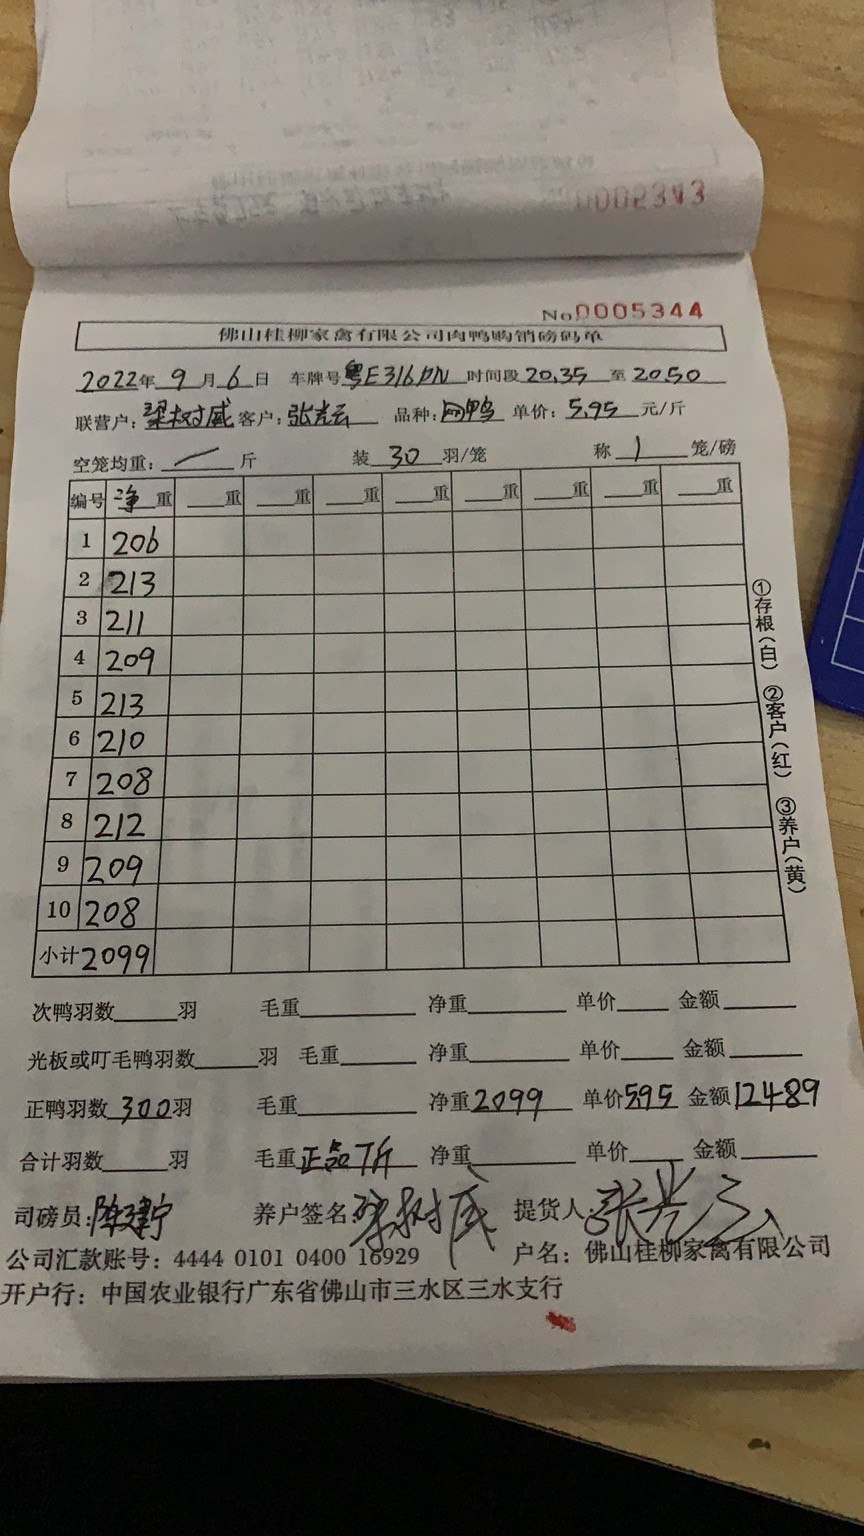 0005343
No 0005344
佛山桂柳家禽有限公司肉鸭购销磅码单
2022年 9月 6日 车牌号 粤E316DN 时间段 20.35 至 20.50
联营户: 梁树威 客户: 张光云 品种: 网鸭 单价: 5.95 元/斤
空笼均重: 一 斤 装 30 羽/笼 称 1 笼/磅
编号 净重 重 重 重 重 重 重 重 重
1 206
2 213
3 211
4 209
5 213
6 210
7 208
8 212
9 209
10 208
小计 2099
①存根(白) ②客户(红) ③养户(黄)
次鸭羽数 羽 毛重 净重 单价 金额
光板或叮毛鸭羽数 羽 毛重 净重 单价 金额
正鸭羽数 300羽 毛重 净重 2099 单价 595 金额 12489
合计羽数 羽 毛重 正品7斤 净重 单价 金额
司磅员: 陈建宁 养户签名: 梁树威 提货人: 张光云
公司汇款账号: 4444 0101 0400 16929 户名: 佛山桂柳家禽有限公司
开户行: 中国农业银行广东省佛山市三水区三水支行